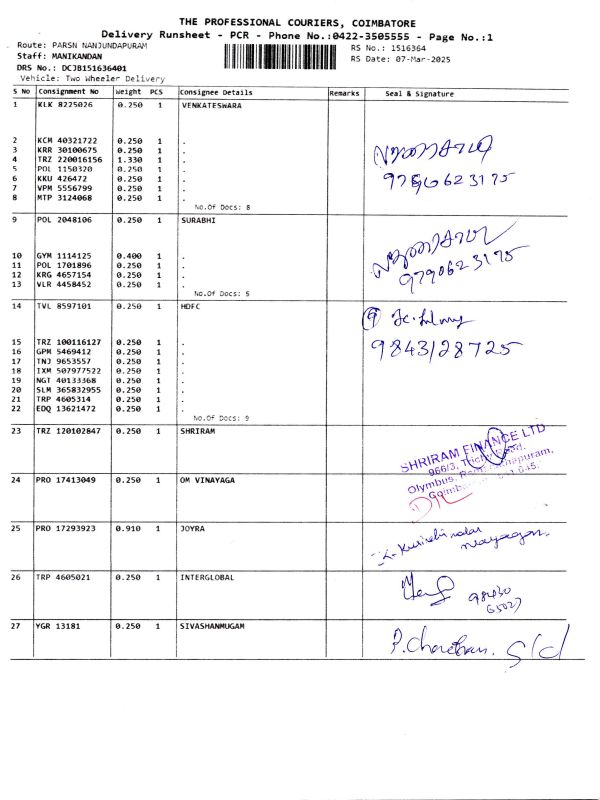 THE PROFESSIONAL COURIERS, COIMBATORE
Delivery Runsheet - PCR - Phone No.:0422-3505555 - Page No.:1
Route: PARSN NANJUNDAPURAM
RS No.: 1516364
Staff: MANIKANDAN
RS Date: 07-Mar-2025
DRS No.: DCJB151636401
Vehicle: Two Wheeler Delivery
S No Consignment No Weight PCS Consignee Details Remarks Seal & Signature
1 KLK 8225026 0.250 1 VENKATESWARA
2 KCM 40321722 0.250 1 .
3 KRR 30100675 0.250 1 .
4 TRZ 220016156 1.330 1 .
5 POL 1150320 0.250 1 .
6 KKU 426472 0.250 1 .
7 VPM 5556799 0.250 1 .
8 MTP 3124068 0.250 1 .
9790623175
No.Of Docs: 8
9 POL 2048106 0.250 1 SURABHI
10 GYM 1114125 0.400 1 .
11 POL 1701896 0.250 1 .
12 KRG 4657154 0.250 1 .
13 VLR 4458452 0.250 1 .
9790623175
No.Of Docs: 5
14 TVL 8597101 0.250 1 HDFC
15 TRZ 100116127 0.250 1 .
9843128725
16 GPM 5469412 0.250 1 .
17 TNJ 9653557 0.250 1 .
18 IXM 507977522 0.250 1 .
19 NGT 40133368 0.250 1 .
20 SLM 365832955 0.250 1 .
21 TRP 4605314 0.250 1 .
22 EDQ 13621472 0.250 1 .
No.Of Docs: 9
23 TRZ 120102847 0.250 1 SHRIRAM
SHRIRAM FINANCE LTD
966/3, Trichy Road,
Olympus, Ramanathapuram,
24 PRO 17413049 0.250 1 OM VINAYAGA
25 PRO 17293923 0.910 1 JOYRA
26 TRP 4605021 0.250 1 INTERGLOBAL
98430
65027
27 YGR 13181 0.250 1 SIVASHANMUGAM